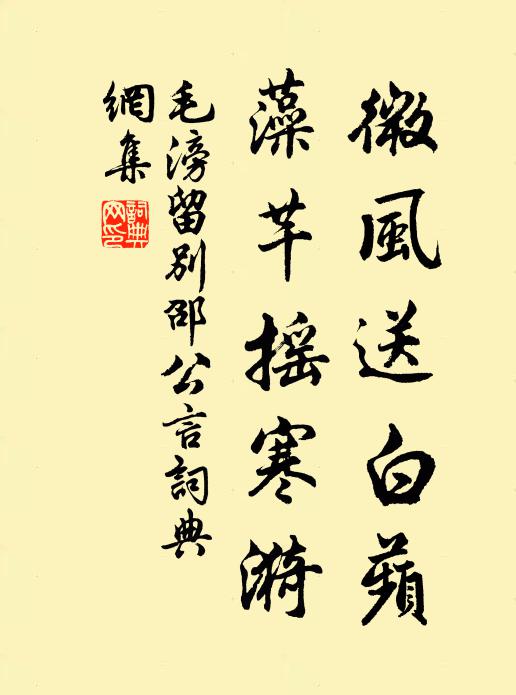 微風送白蘋
藻芊搖寒漪
毛滂留別邵公言詞典
網集
詞典網印